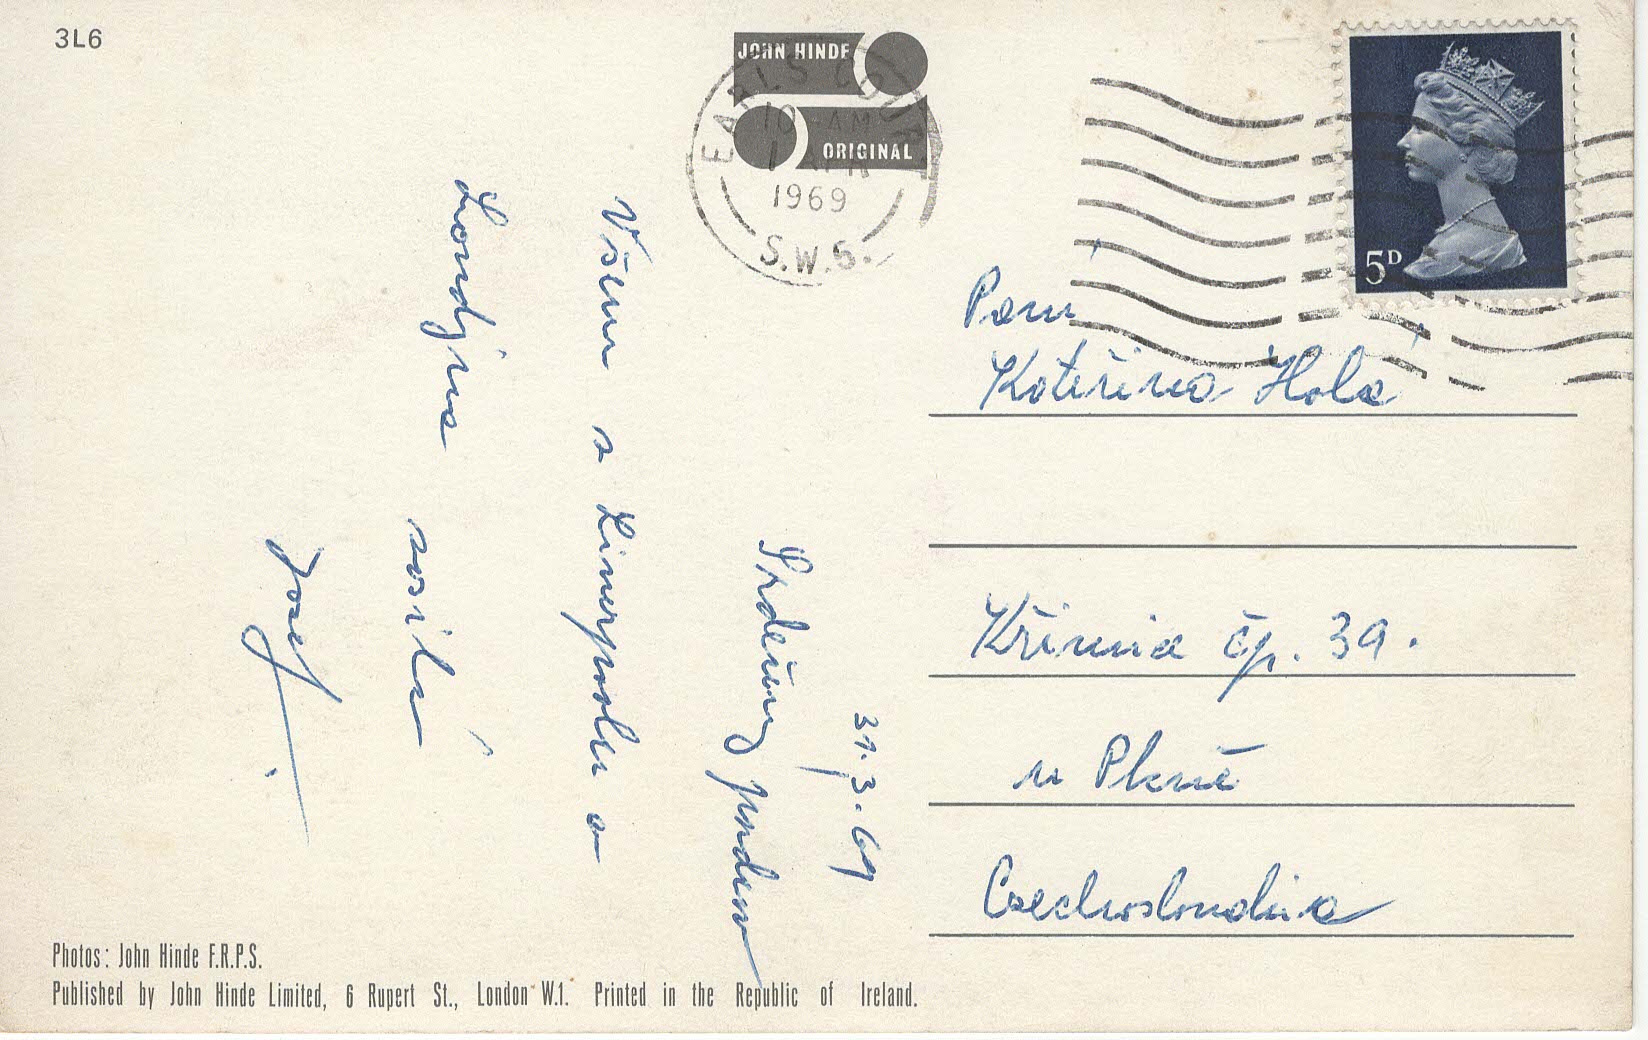 3L6
JOHN HINDE
ORIGINAL
EARL'S COURT
10-AM
1 APR
1969
S.W.5.
5D
31.3.69
Srdečný pozdrav
Všem z Liverpoolu a
Londýna
posílá
Josef.
Paní
Kateřina Holá
Křimice čp. 39.
u Plzně
Czechoslovakia
Photos: John Hinde F.R.P.S.
Published by John Hinde Limited, 6 Rupert St., London W.1. Printed in the Republic of Ireland.